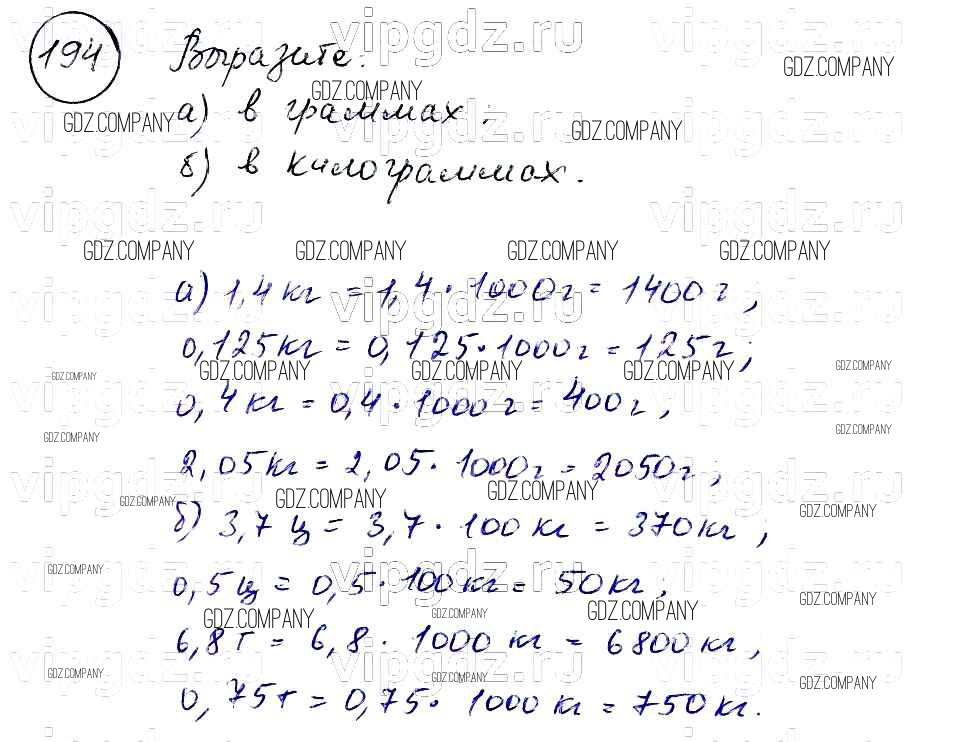 194 Выразите:
а) в граммах;
б) в килограммах.
а) 1,4 кг = 1,4 · 1000 г = 1400 г;
0,125 кг = 0,125 · 1000 г = 125 г;
0,4 кг = 0,4 · 1000 г = 400 г;
2,05 кг = 2,05 · 1000 г = 2050 г;
б) 3,7 ц = 3,7 · 100 кг = 370 кг;
0,5 ц = 0,5 · 100 кг = 50 кг;
6,8 т = 6,8 · 1000 кг = 6800 кг;
0,75 т = 0,75 · 1000 кг = 750 кг.
vipgdz.ru
GDZ.COMPANY